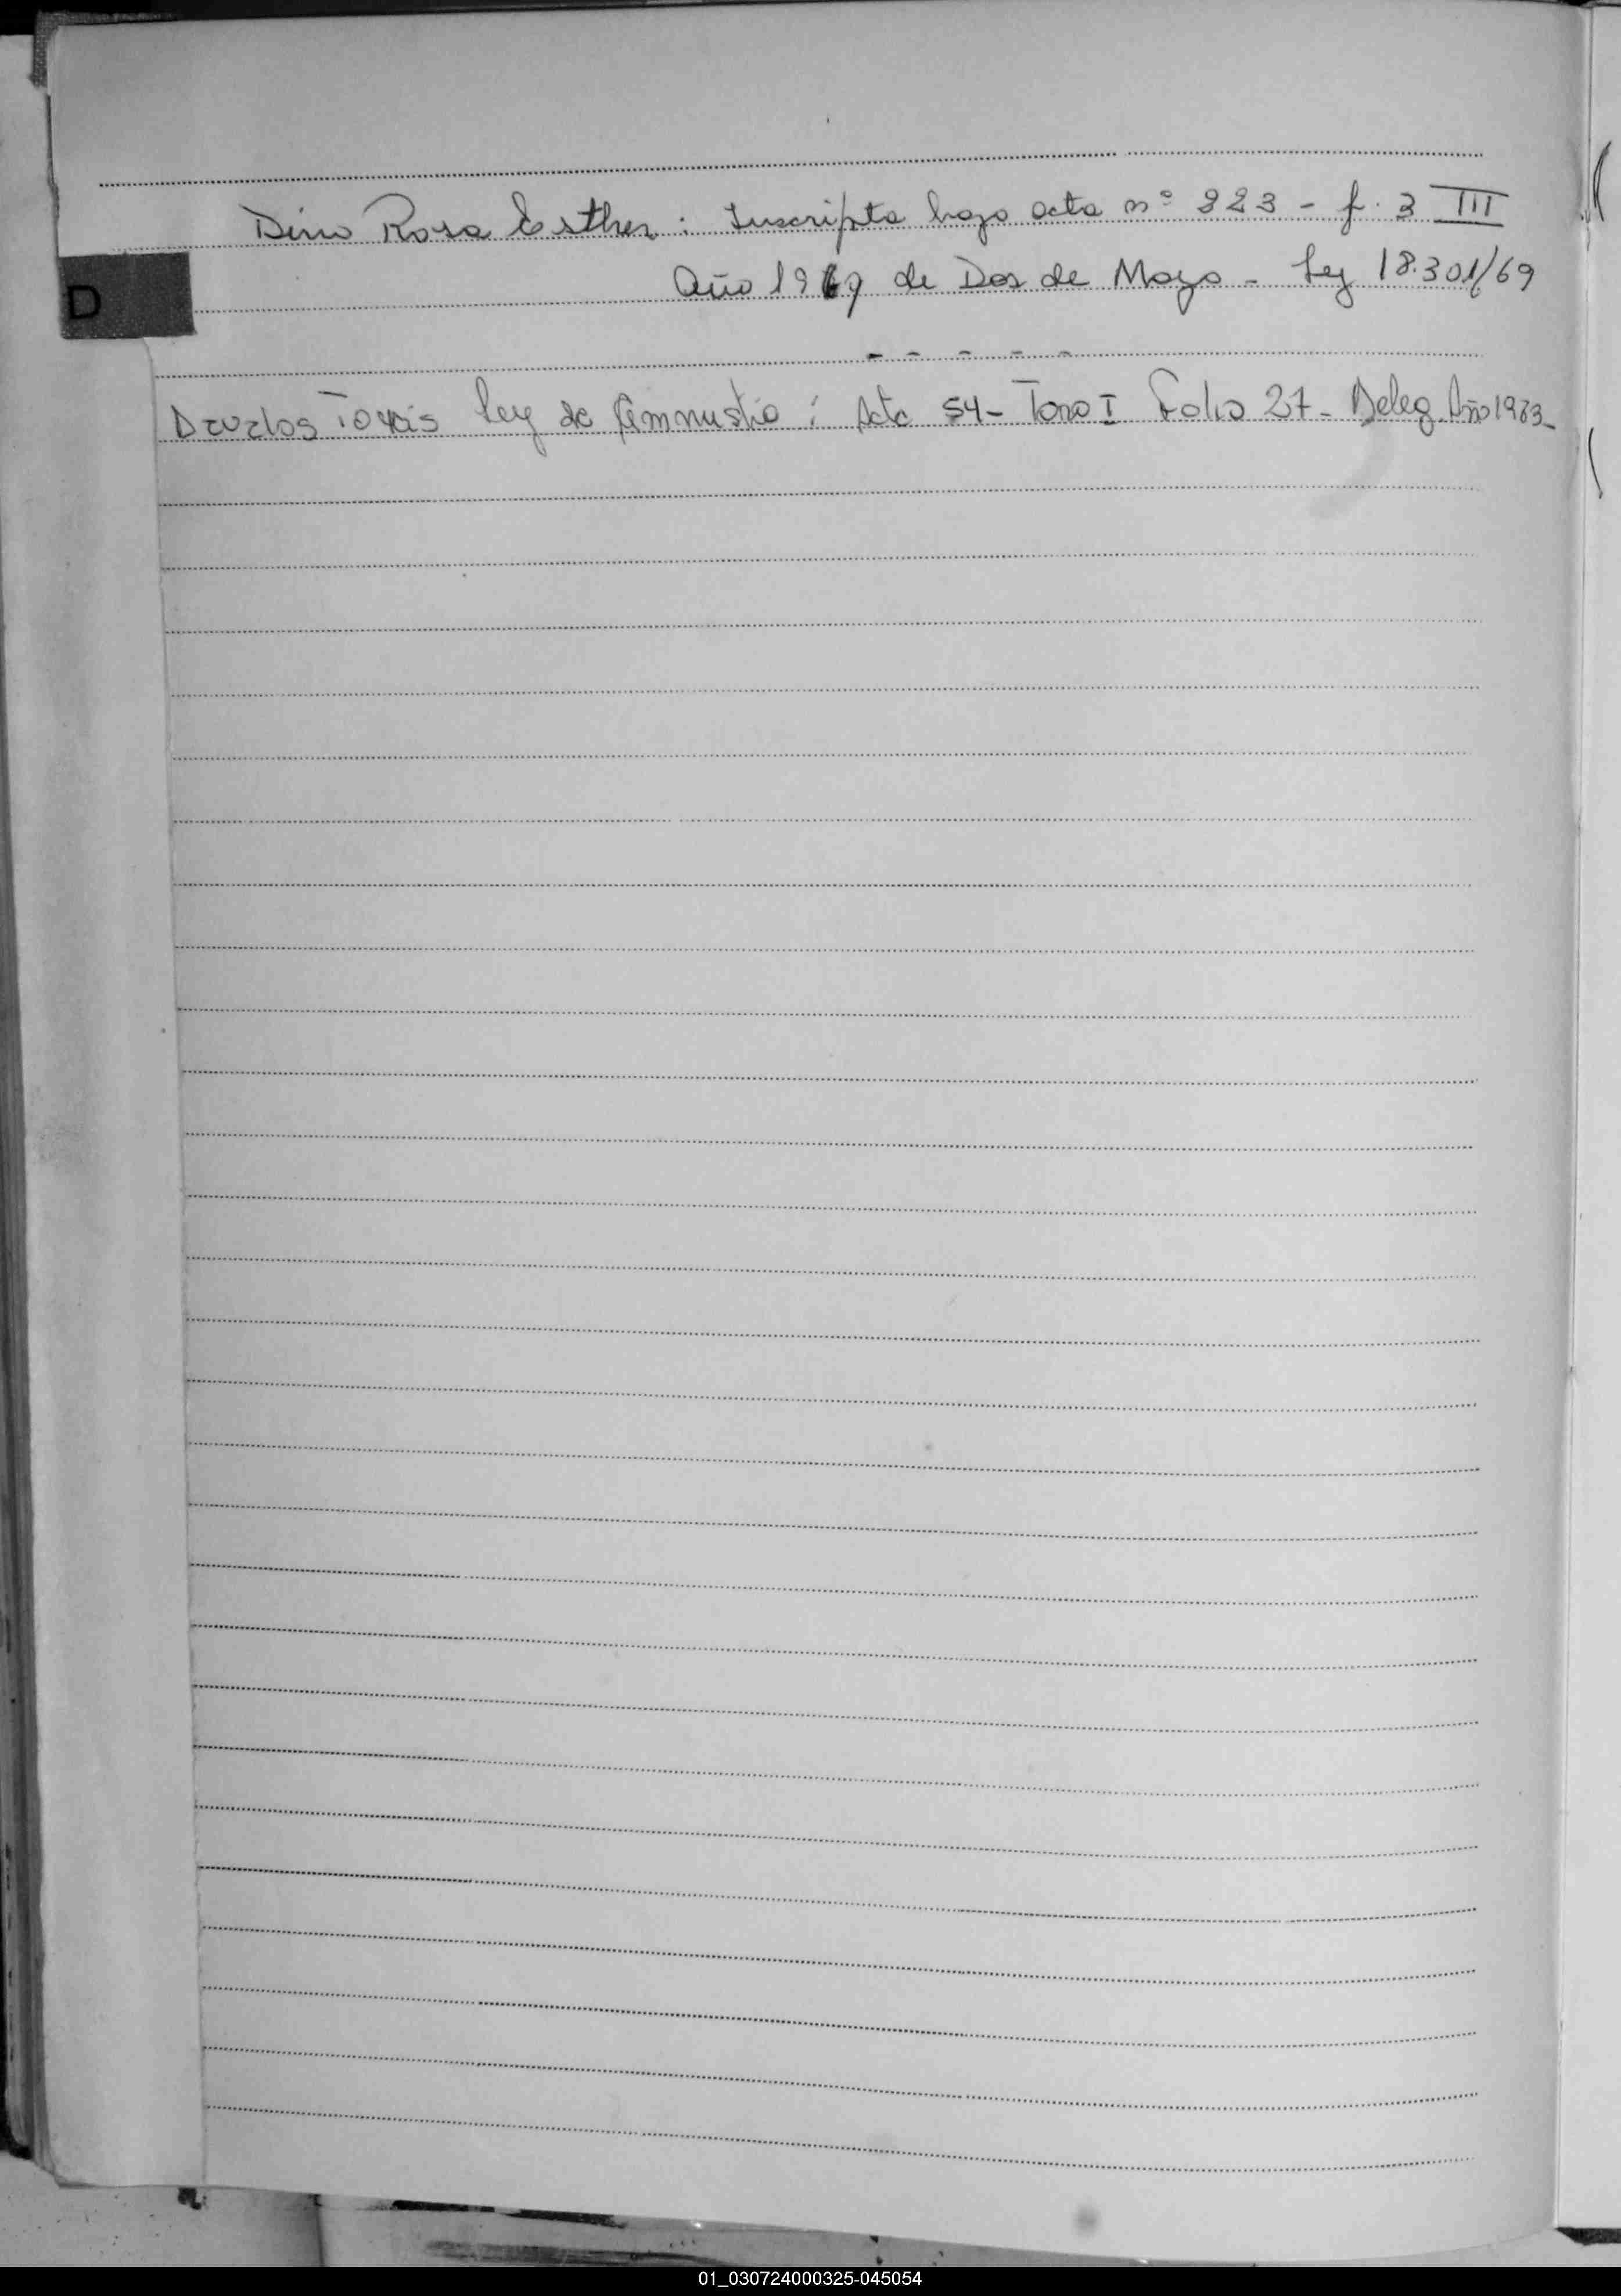 Dino Rosa Esther : Inscripta bajo acta nº 823 - f. 3 III
D
Año 1969 de Dos de Mayo - Ley 18.301/69
- - - - -
Tomás Ley de Amnnistia : Acta 54 - Tomo I Folio 27 - Deleg Año 1983 -
01_030724000325-045054